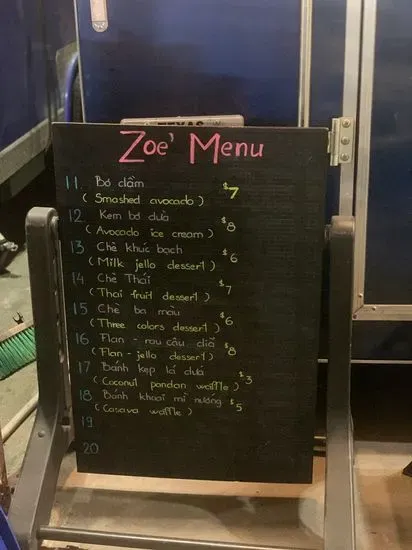 TEXAS
Zoe' Menu
11. Bơ dầm $7
(Smashed avocado)
12. Kem bơ dừa $8
(Avocado ice cream)
13 Chè khúc bạch $6
(Milk jello dessert)
14 Chè Thái $7
(Thai fruit dessert)
15 Chè ba màu $6
(Three colors dessert)
16 Flan - rau câu dừa $8
(Flan - jello dessert)
17 Bánh kẹp lá dứa $3
(Coconut pandan waffle)
18 Bánh khoai mì nướng $5
(Casava waffle)
19
20